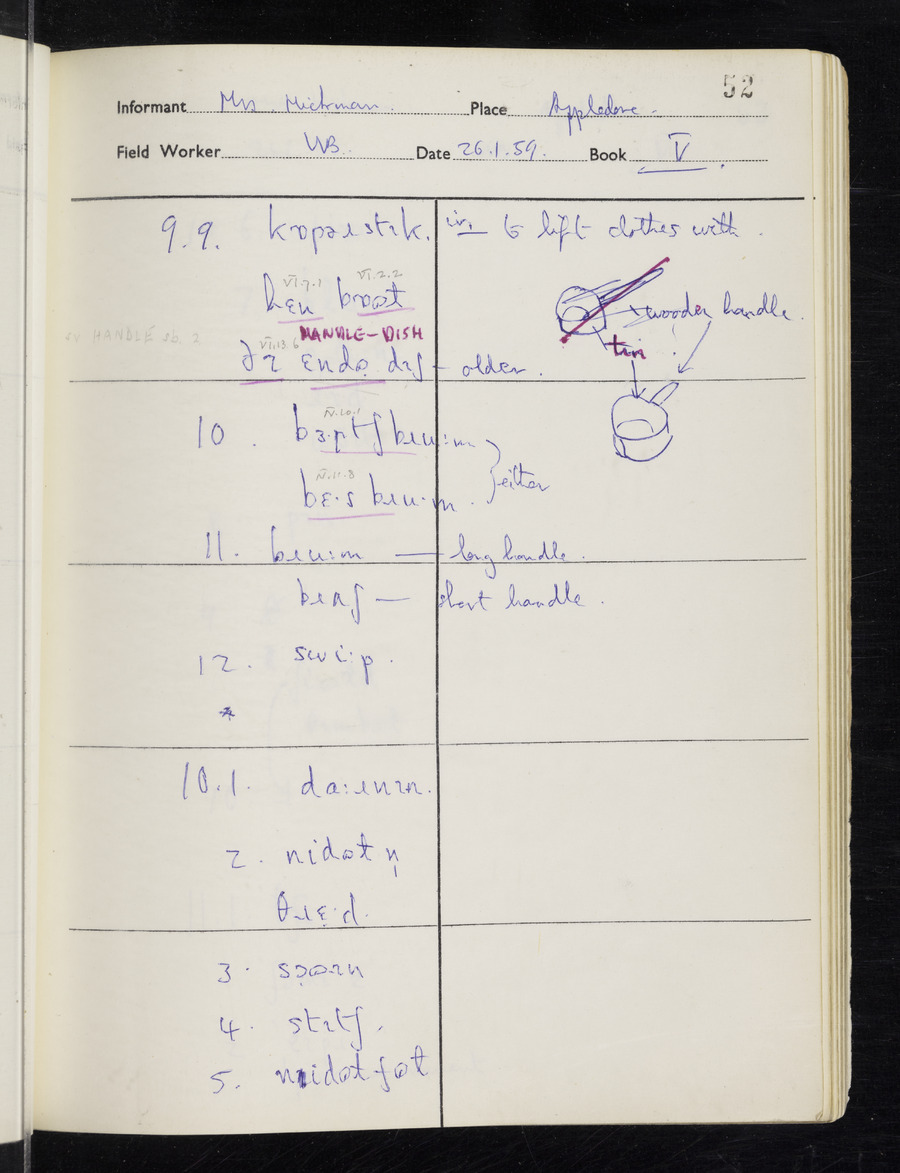 52
Informant Mrs. Hickman. Place Appledore.
Field Worker WB. Date 26.1.59. Book V
9.9. kɒpəɹstɪk. i.v. to lift clothes with.
VI.7.1 VI.2.2
wooden handle.
HANDLE sb. 2 HANDLE-DISH tin
VI.13.6
ðɪ ɛndəɫ dɪʃ — older.
10. bɜ·ɹtʃ bɹʉ:m
IV.10.1
} either
IV.11.8
bɛ·s bɹʉ·m.
11. bɹʉ:m — long handle.
bɹʌʃ — short handle.
12. swi:p.
*
10.1. da:ɹnɪn.
2. nidəɫ n̩
θɹɛ·d.
3. spɔəɪn
4. stɪtʃ.
5. nidəɫ